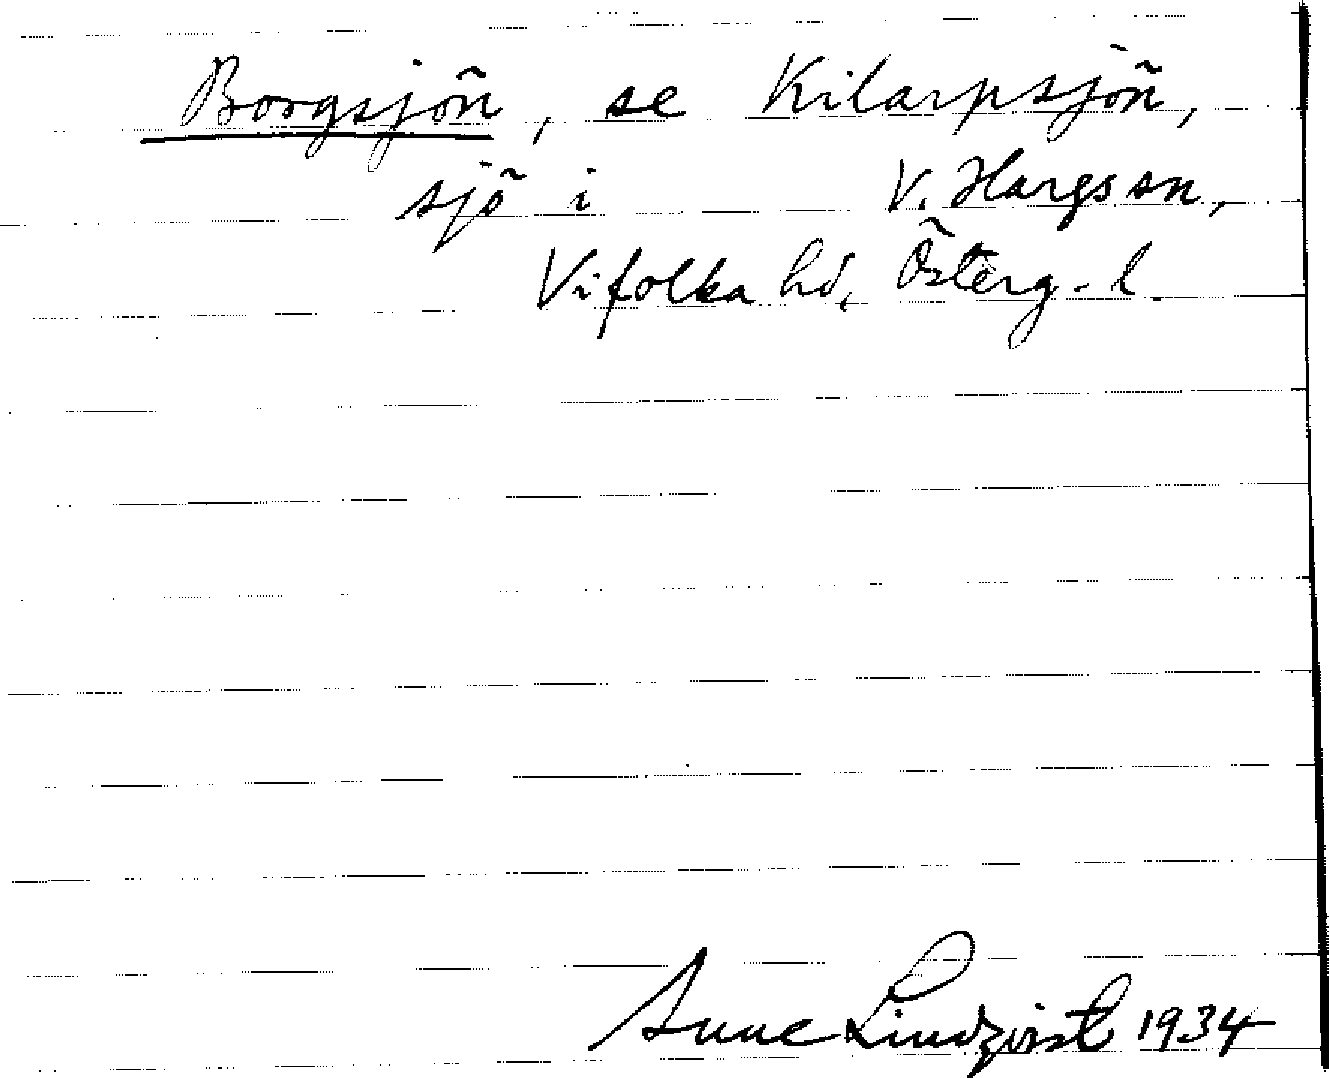 Borgsjön, se Kilarpsjön,
sjö i V. Hargs sn,
Vifolka hd, Österg. l.
Sune Lindqvist 1934